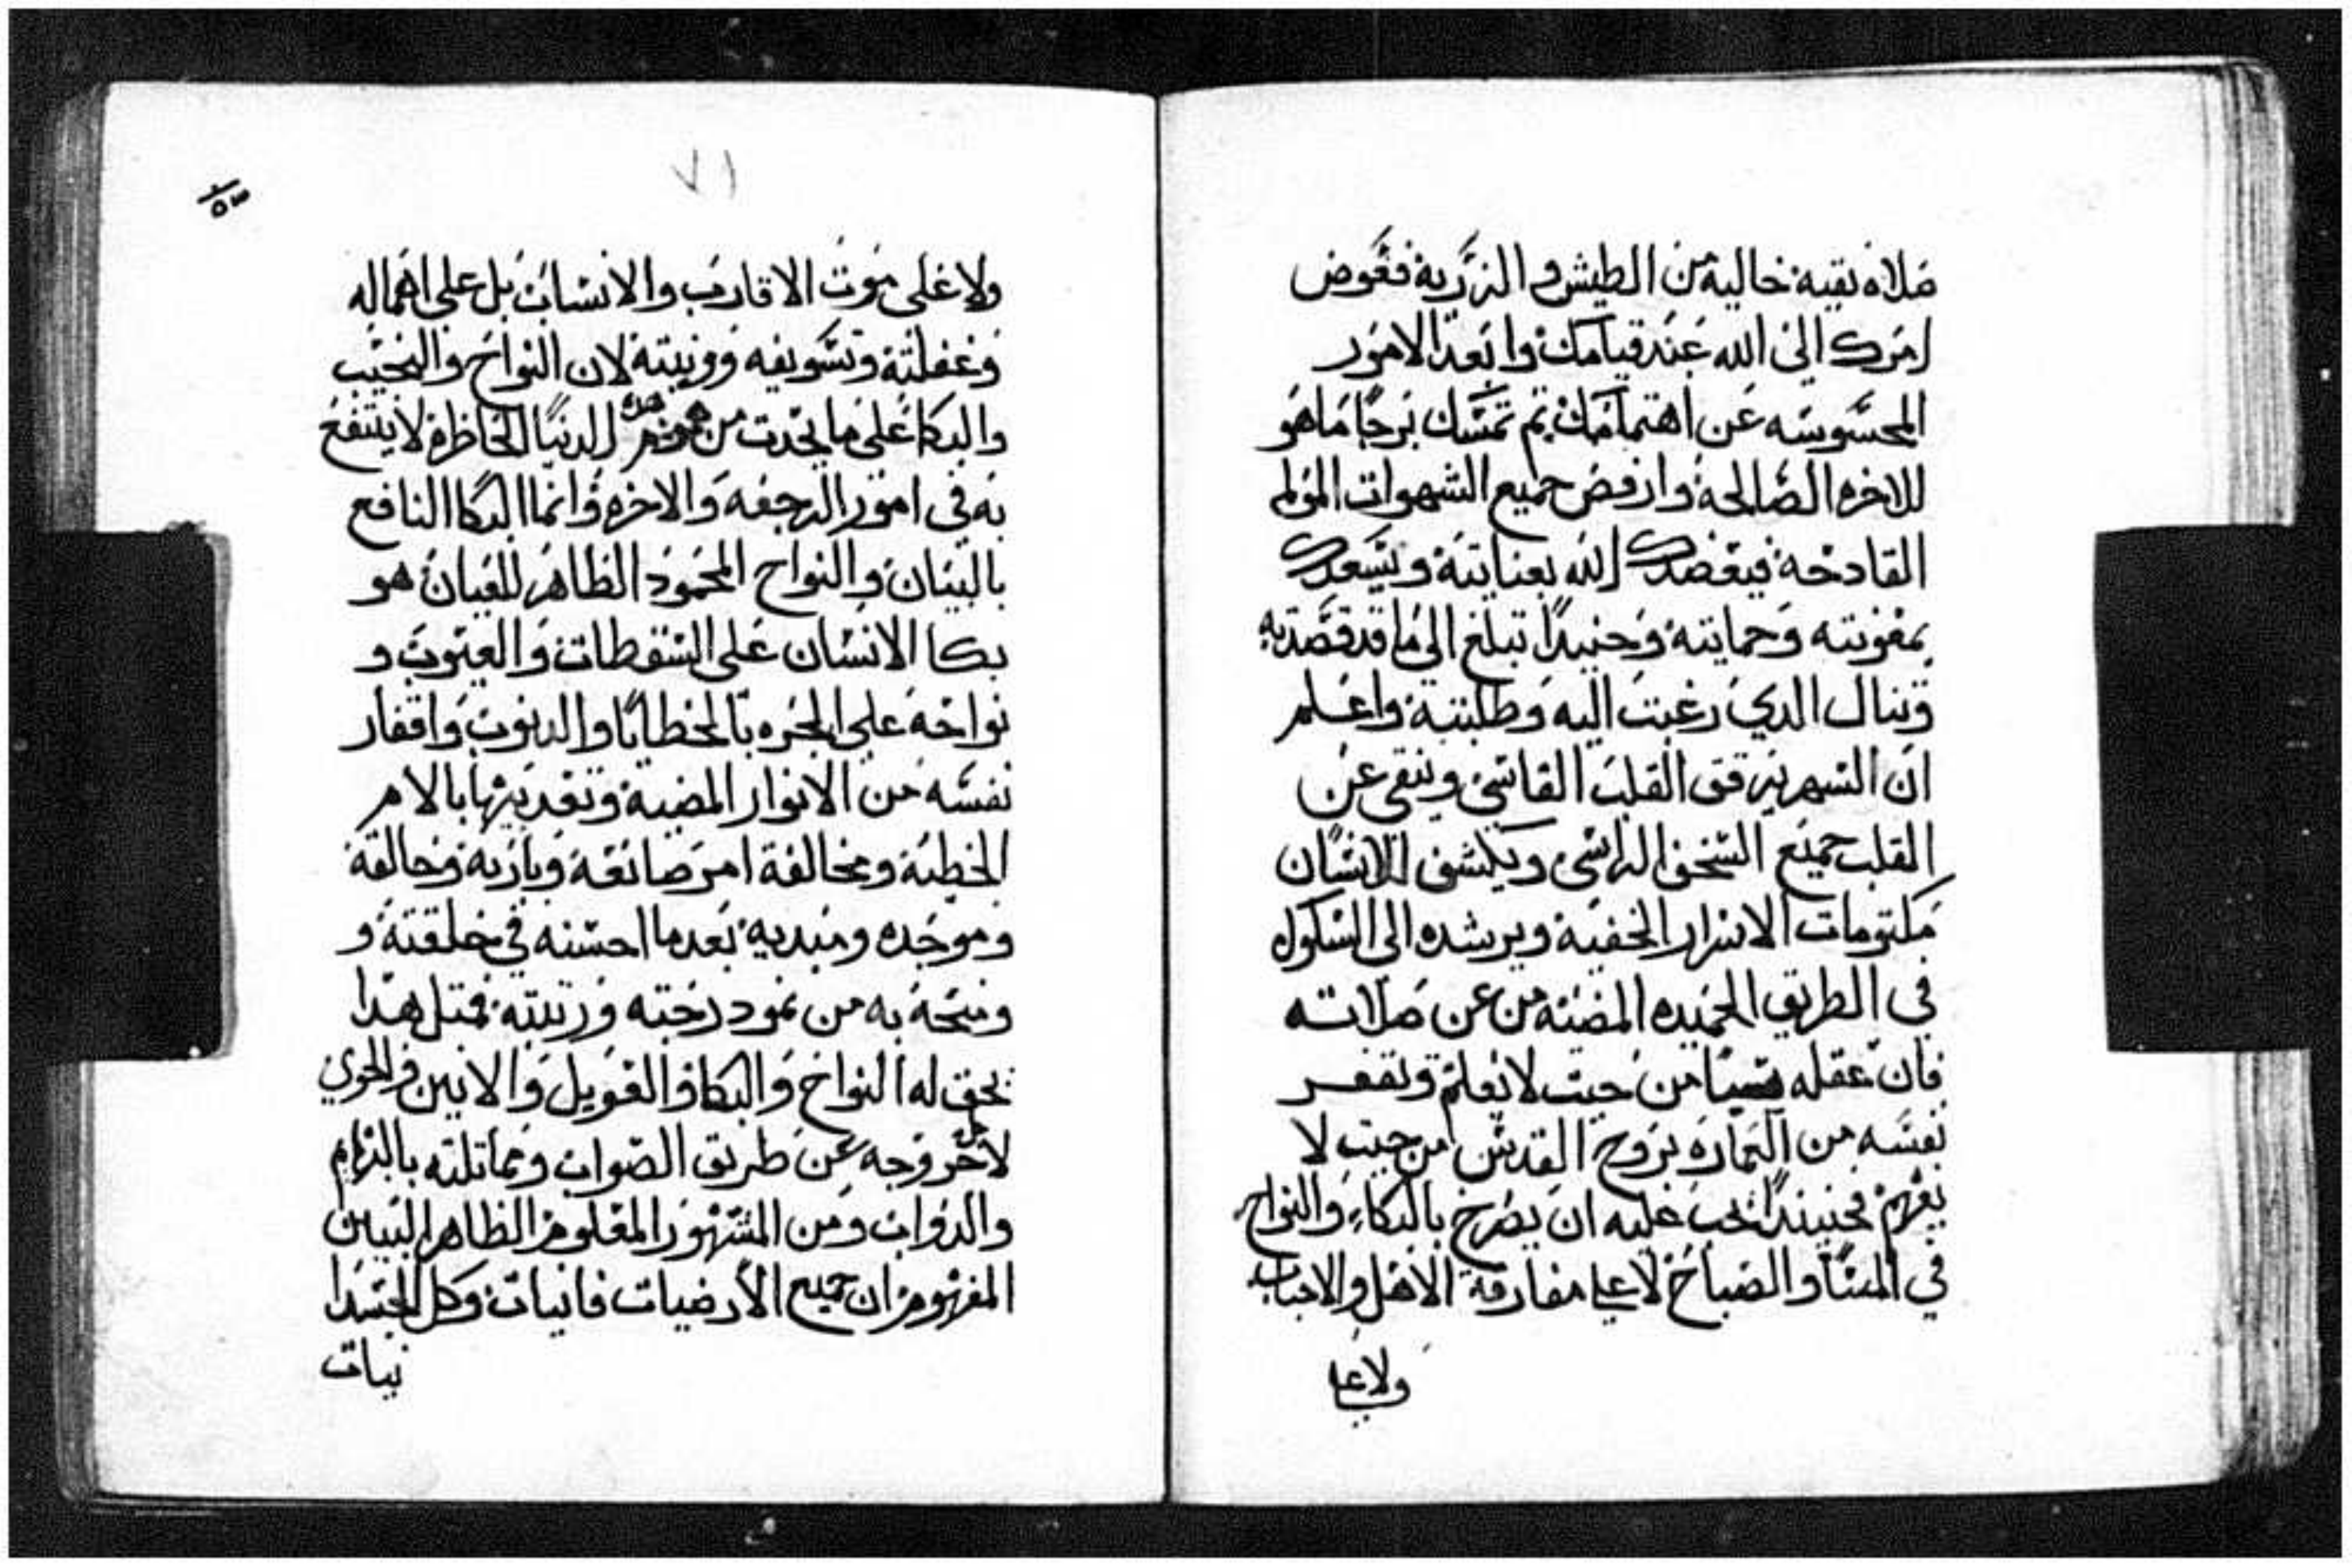 صلاه نقيه خاليه من الطيش والزريه ففوض
امرك الي الله عند قيامك وابعد الامور
المحسوسه عن اهتمامك ثم تمسك برجا ما هو
للاخره الصالحة وارفض جميع الشهوات المولم
القادحة فيعضدك الله بعنايته ويسعدك
بمعونته وحمايته وحينيدًا تبلغ الي ما قد قصدته
وتنال الدي رغبت اليه وطلبته واعلم
ان السهر يرقق القلب القاسي وينقي عن
القلب جميع السخف الراسي ويكشف للانسان
مكتومات الاسرار الخفيه ويرشده الى السلوك
في الطريق الحميده المضيه من عن صلاته
فان عقله من حيت لا يعلم وتقفر
نفسه من التماره بروح القدس من حيت لا
يفهم فحينيندًا يجب عليه ان يصرخ بالبكاء والنواح
في المسا والصباح لا علي مفارقة الاهل والاحباب
ولا علي
٧١
١٥٣
ولا علي موت الاقارب والانساب بل علي اهماله
وغفلته وتسويفه وونيته لان النواح والنحيب
والبكا علي ما يحدت من هموم هذه الدنيا الحاظره لا ينتفع
به في امور الرجعه والاخره وانما البكا النافع
بالبيان والنواح المحمود الظاهر للعيان هو
بكا الانسان على السقطات والعيوب و
نواحه علي الجره بالخطايا والدنوب واقفار
نفسه من الانوار المضيه وتعديتها بالامر
الخطيه ومخالفة امر صانعه وباريه وخالقه
وموجده ومبديه بعدما احسنه في خلقته و
ومنحه به من نمود رحمته ورتبته فمتل هدا
يحق له النواح والبكا والعويل والانين والحري
لاجل خروجه عن طريق الصواب ومماتلته بالبهايم
والدواب ومن المشهور المعلوم الظاهر البيين
المفهوم ان جميع الارضيات فانيات وكل الجسدا
نيات